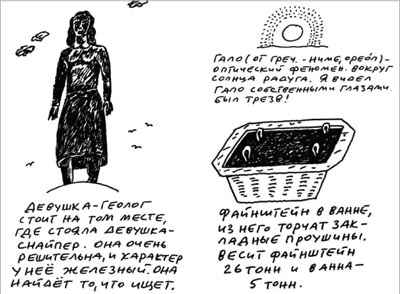 ГАЛО (ОТ ГРЕЧ. - НИМБ, ОРЕОЛ) -
ОПТИЧЕСКИЙ ФЕНОМЕН. ВОКРУГ
СОЛНЦА РАДУГА. Я ВИДЕЛ
ГАЛО СОБСТВЕННЫМИ ГЛАЗАМИ.
БЫЛ ТРЕЗВ!
ДЕВУШКА-ГЕОЛОГ
СТОИТ НА ТОМ МЕСТЕ,
ГДЕ СТОЯЛА ДЕВУШКА-
СНАЙПЕР. ОНА ОЧЕНЬ
РЕШИТЕЛЬНА, И ХАРАКТЕР
У НЕЁ ЖЕЛЕЗНЫЙ. ОНА
НАЙДЁТ ТО, ЧТО ИЩЕТ.
ФАЙНШТЕЙН В ВАННЕ,
ИЗ НЕГО ТОРЧАТ ЗАК-
ЛАДНЫЕ ПРОУШИНЫ.
ВЕСИТ ФАЙНШТЕЙН
26 ТОНН И ВАННА -
5 ТОНН.